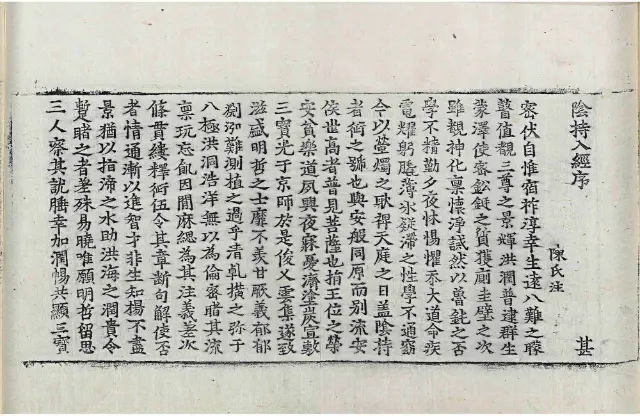 陰持入經序
陳氏注
甚
密伏自惟宿祚淳幸生逮八難之矇
瞽值覩三尊之景輝洪潤普逮群生
蒙澤使密鉛鋌之質獲廁圭璧之次
雖覩神化稟懷淨誠然以魯鈍之否
學不精勤夕夜怵惕懼忝大道命疾
電耀躬臨薄氷疑滯之性學不通竊
今以螢燭之耿裨天庭之日蓋陰持
者行之號也與安般同原而別流安
侯世高者普見菩薩也捐王位之榮
安貧樂道夙興夜寐憂濟塗炭宣敷
三寶光于京師於是俊乂雲集遂致
滋盛明哲之士靡不羨甘厥義郁郁
淵泓難測植之過乎清乹橫之弥于
八極洪洞浩洋無以為倫密睹其流
稟玩忘飢因閒麻緦為其注義差次
條貫縫釋行伍令其章斷句解使否
者情通漸以進智才非生知揚不盡
景猶以指滯之水助洪海之潤貴令
蹔睹之者差殊易曉唯願明哲留思
三人察其訧勝幸加潤暢共顯三寶